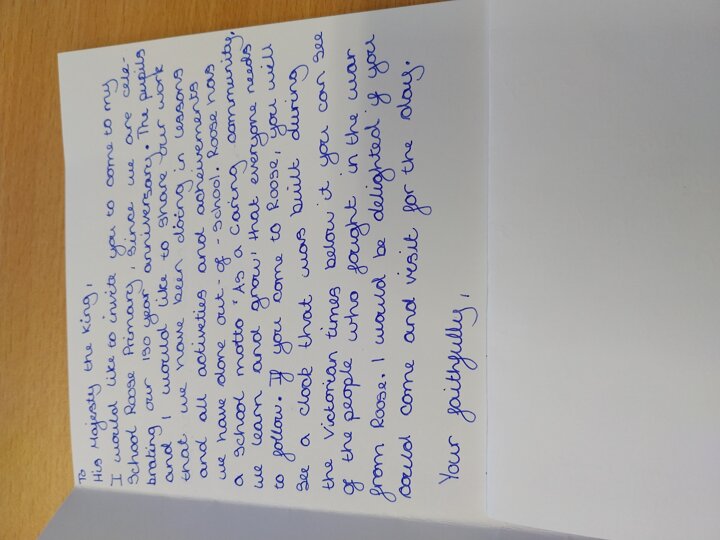 To
His Majesty the King,
I would like to invite you to come to my
School Roose Primary, Since we are cele-
brating our 150 year anniversary. The pupils
and I would like to share our work
that we have been doing in lessons
and all activeties and acheivements
we have done out-of-school. Roose has
a school motto 'As a caring community,
we learn and grow' that everyone needs
to follow. If you come to Roose, you will
see a clock that was built during
the Victorian times below it you can see
of the people who fought in the war
from Roose. I would be delighted if you
could come and visit for the day.
Your faithfully,